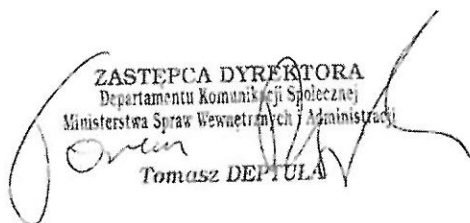 ZASTĘPCA DYREKTORA
Departamentu Komunikacji Społecznej
Ministerstwa Spraw Wewnętrznych i Administracji
Tomasz DEPTUŁA